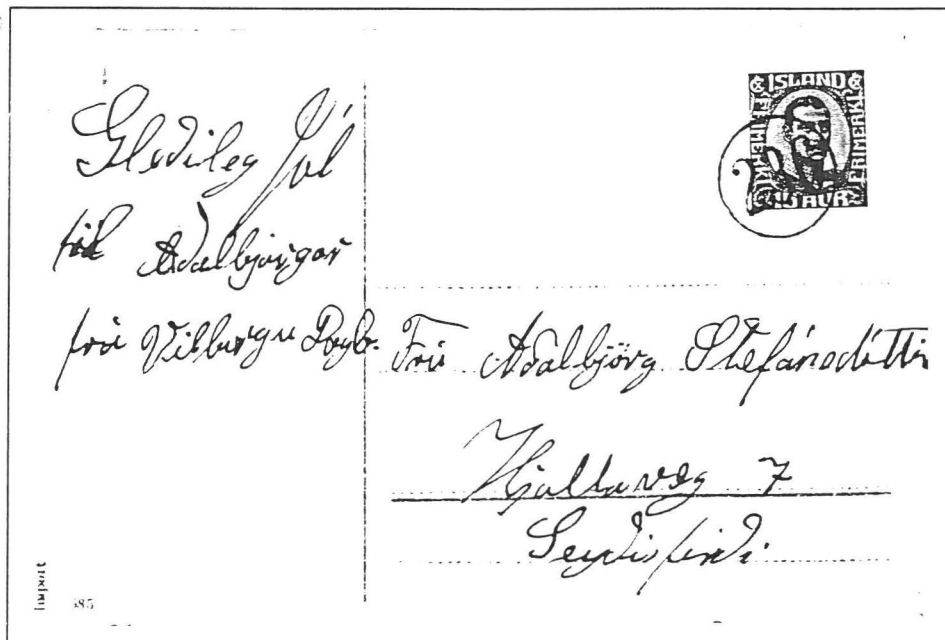 Gleðileg Jól
til Aðalbjörgar
frá Vilborgu
ISLAND
FRIMERKI
FRIMERKI
AUR
Frú Aðalbjörg Stefánsdóttir
Hjallaveg 7
Seyðisfirði
Import
585